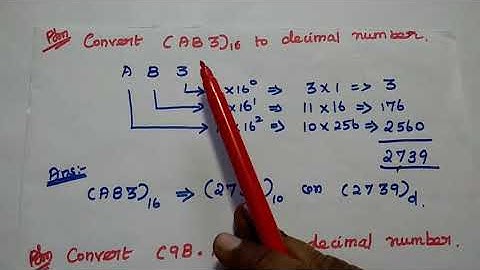 Pbm Convert (AB3)₁₆ to decimal number.
A B 3
x16⁰ ⇒ 3x1 => 3
x16¹ ⇒ 11x16 ⇒ 176
x16² ⇒ 10x256 ⇒ 2560
2739
Ans:-
(AB3)₁₆ ⇒ (27 )₁₀ on (2739)d.
Pbm Convert (9B. decimal number.